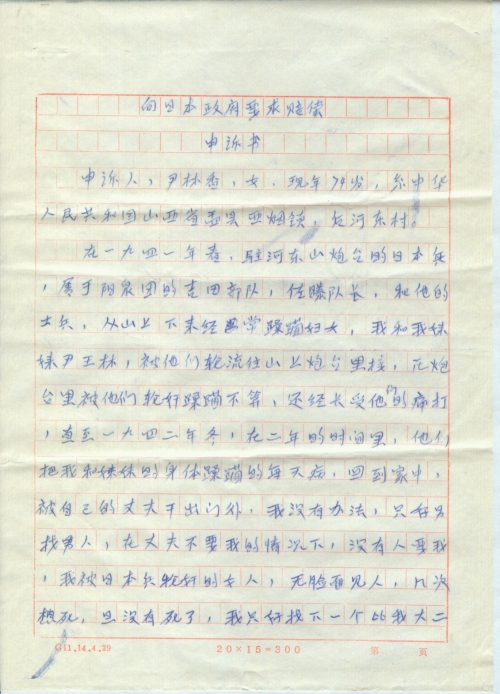 向日本政府要求赔偿
申诉书
申诉人，尹林香，女，现年79岁，系中华
人民共和国山西省盂县西烟镇，后河东村。
在一九四一年春，驻河东山炮台的日本兵
，属于阳泉团的吉田部队，佐滕队长，和他的
士兵，从山上下来经常蹂蹦妇女，我和我妹
妹尹玉林，被他们轮流往山上炮台里接，在炮
台里被他们轮奸蹂蹦不算，还经长受他们的痛打
，直至一九四二年冬，在二年的时间里，他们
把我和妹妹的身体蹂蹦的每天病，回到家中，
被自己的丈夫干出门外，我没有办法，只好另
找男人，在丈夫不要我的情况下，没有人要我
，我被日本兵轮奸的女人，无脸面见人，几次
想死，旦没有死了，我只好找下一个比我大二
G11.14.4.29 20×15=300 第 頁